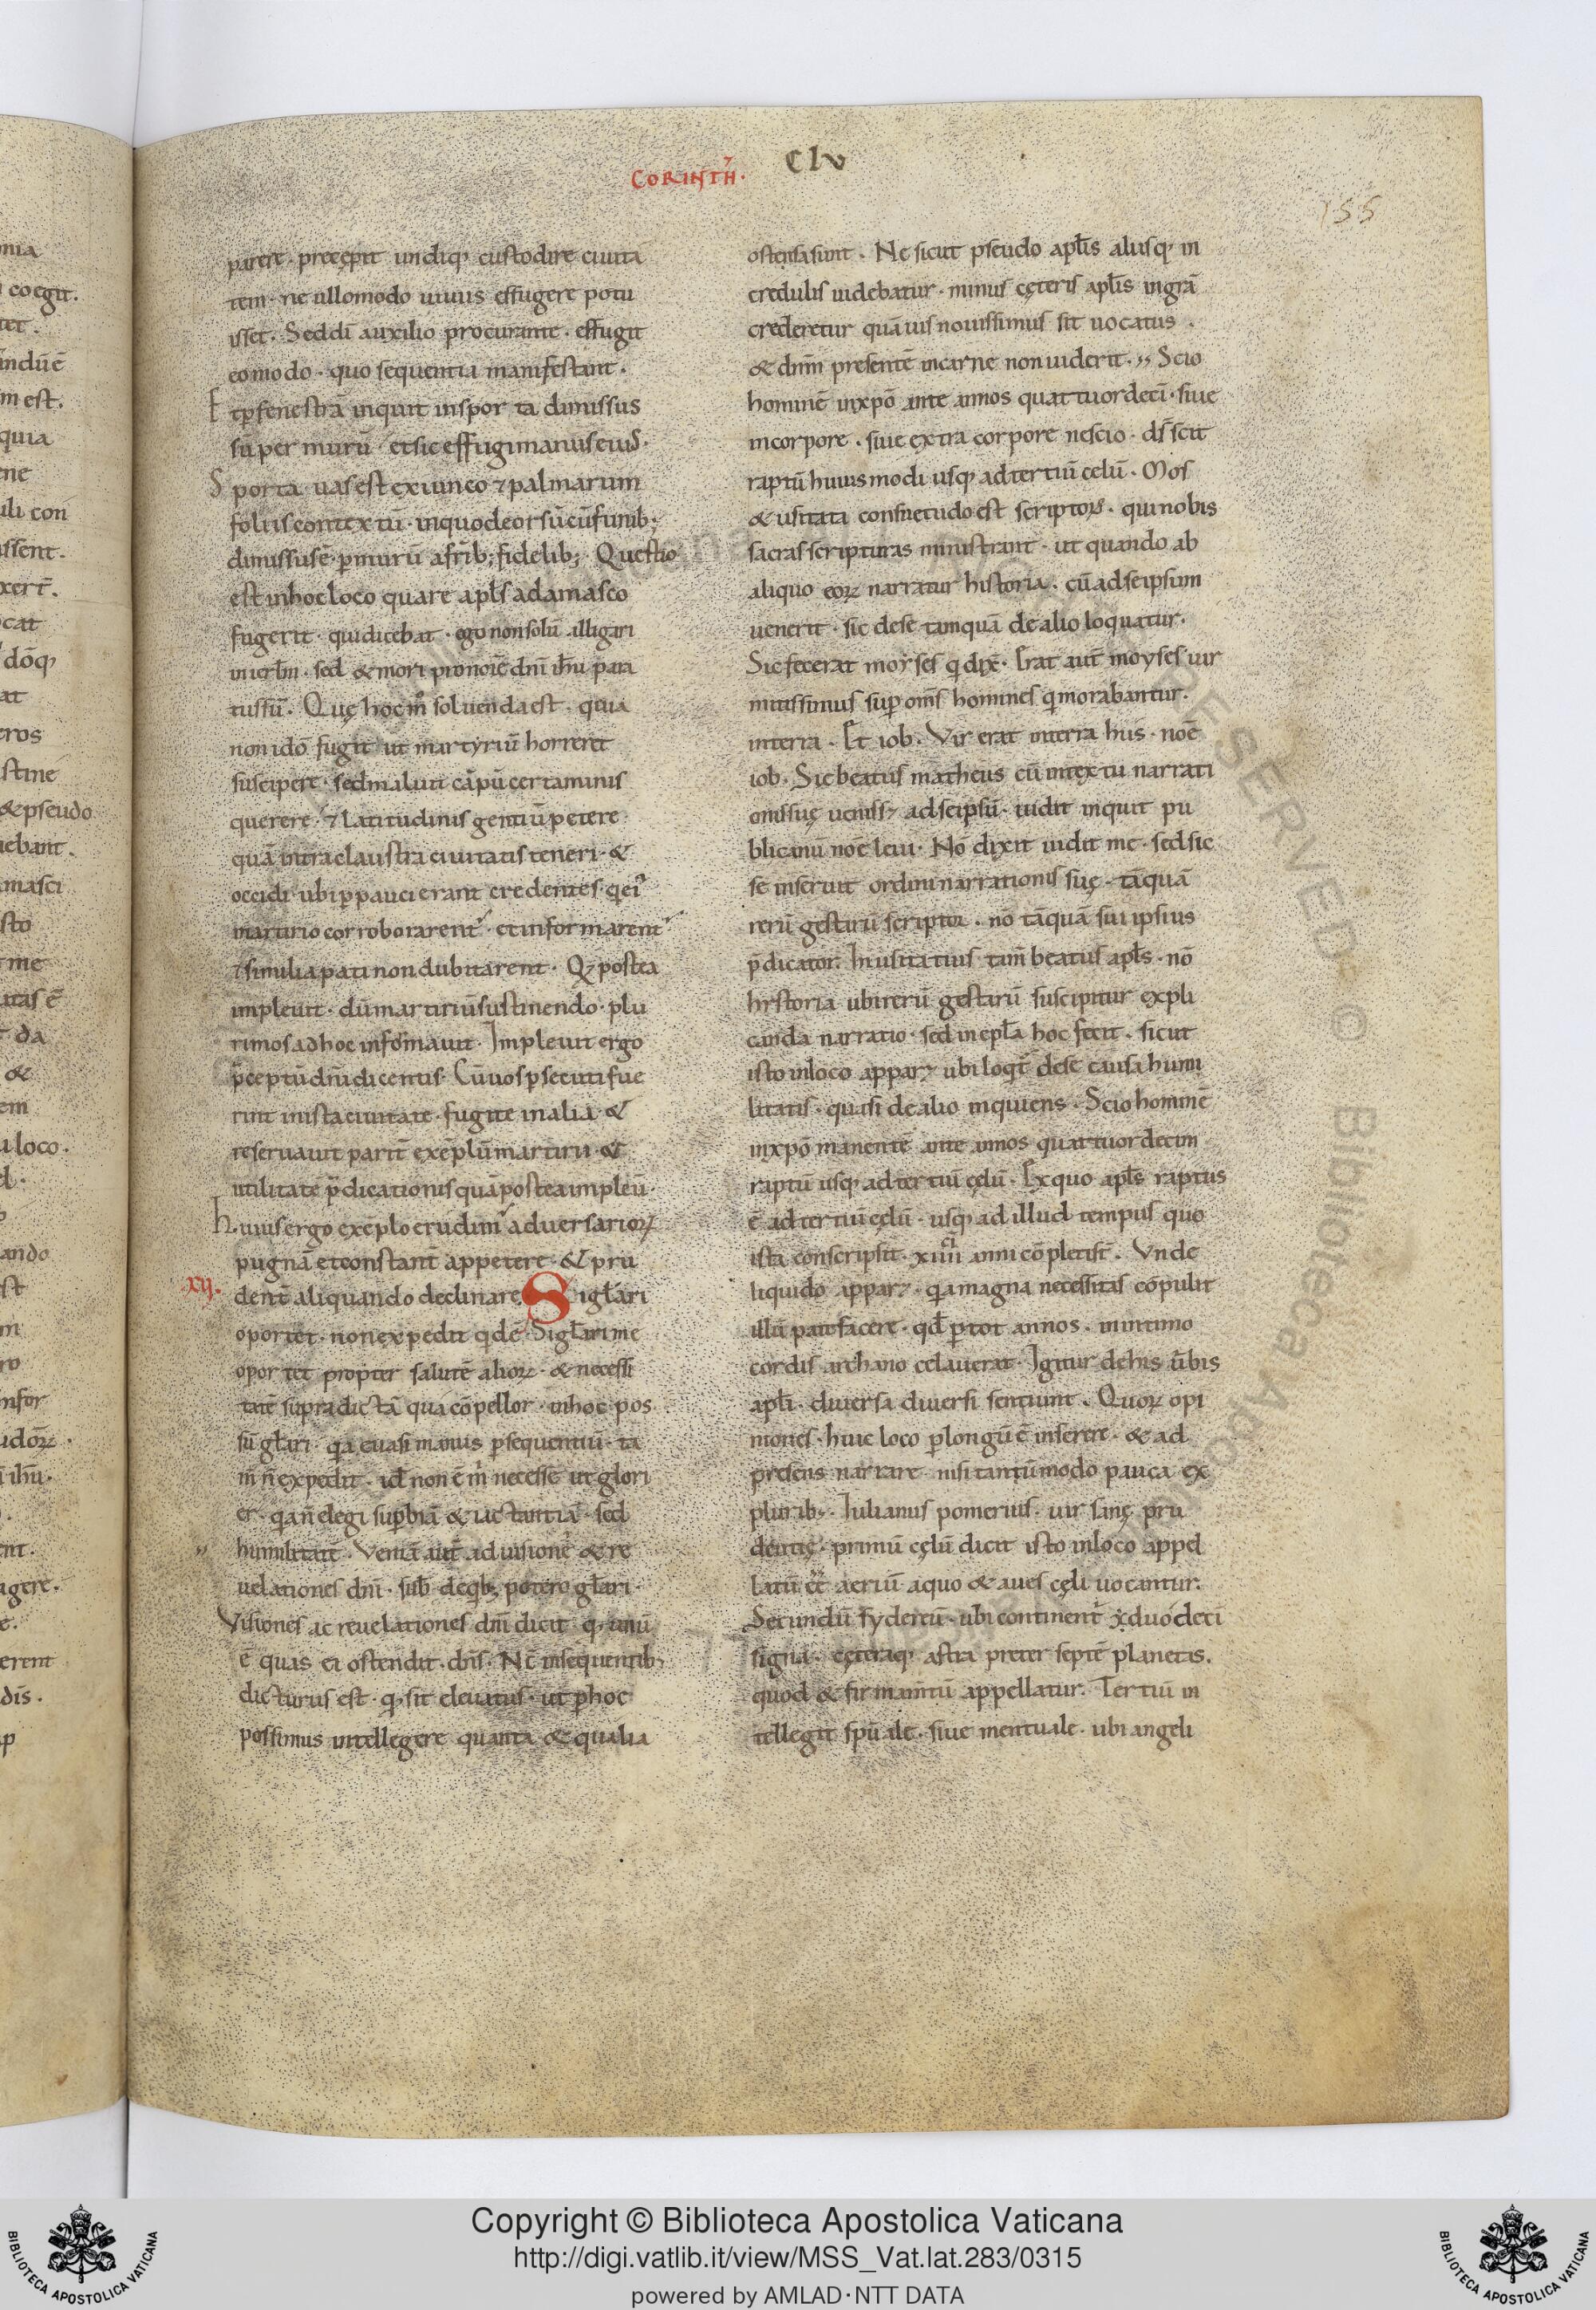 CORINTH̄.
CLV
155
parere · precępit undiq; custodire ciuita
tem · ne ullomodo uiuus effugere potu
isset · Sed dī auxilio procurante · effugit
eo modo · quo sequentia manifestant ·
Et p̱ fenestrā inquit in sporta dimissus
super murū · et sic effugi manus eius ·
Sporta uas est ex iunco ⁊ palmarum
foliis contextū · in quo deorsū cū funib;
dimissus ē · p̱ murū a frīb; fidelib; · Questio
est in hoc loco quare apl̄s a damasco
fugerit · qui dicebat · ego non solū alligari
in ierl̄m · sed & mori pro noīe dn̄i ih̄u para
tus sū · Quę hoc m̊ soluenda est · quia
non idō fugit ut martyriū horreret
suscipere · sed maluit cāpū certaminis
querere · ⁊ latitudinis gentiū petere
quā intra claustra ciuitatis teneri · &
occidi · ubi p̱pauci erant credentes · q̇ ei᾽
martirio corroborarent᾽ · et informarent᾽
⁊ similia pati non dubitarent · Q; postea
impleuit · dū martiriū sustinendo · plu
rimos ad hoc informauit · Impleuit ergo
p̄ceptū dn̄i dicentis · Cū uos p̱secuti fue
rint in ista ciuitate · fugite in alia · &
reseruauit parit̄ exēplū martirii · &
utilitatē p̄dicationis quā postea impleū ·
Huius ergo exēplo erudim᾽ aduersarioꝝ
pugnā et constant̄ appetere · & pru
XII.
dent̄ aliquando declinare · Si gl̄ari
oportet · non expedit q̇dē · Si gl̄ari me
oportet propter salutē alioꝝ · & necessi
tatē supradictā qua cōpellor · in hoc pos
sū gl̄ari · q̇a euasi manus p̱sequentiū · ta
m̄ n̄ expedit · id̄ non ē m̊ necesse ut glori
er · q̇a n̄ elegi sup̱biā & iactantiā · sed
humilitatē · Veniā aut̄ ad uisionē & re
uelationes dn̄i · sub̄ · de q̇b; potero gl̄ari ·
Visiones ac reuelationes dn̄i dicit · q; unū
ē quas ei ostendit · dn̄s · Nē in sequentib;
dicturus est · q; sit eleuatus · ut p̱ hoc
possimus intellegere quanta & qualia
ostensa sunt · Ne sicut pseudo apl̄is aliisq; in
credulis uidebatur · minus cęteris apl̄is in grā
crederetur quāuis nouissimus sit uocatus ·
& dn̄m presentē in carne non uiderit · ,, Scio
hominē in xp̄o ante annos quattuordecī · siue
in corpore · siue extra corpore nescio · d̄s scit
raptū huiusmodi usq; ad tertiū cęlū · Mos
& usitata consuetudo est scriptoꝝ · qui nobis
sacras scripturas ministrant · ut quando ab
aliquo eoꝝ narratur historia · cū ad seipsum
uenerit · sic de se tamquā de alio loquatur ·
Sic fecerat moyses q̇ dix̄ · Erat aut̄ moyses uir
mitissimus sup̱ om̄s homines q̇ morabantur ·
in terra · Et iob · Vir erat in terra hus · noē
iob · Sic beatus matheus cū in textu narrati
onis suę uenisset ad seipsū · uidit inquit pu
blicanū noē leui · Nō dixit uidit me · sed sic
se inseruit ordini narrationis suę · tāquā
rerū gestarū scriptor · nō tāquā sui ipsius
p̄dicator · Inusitatius tam̄ beatus apl̄s · nō
historia ubi rerū gestarū suscipitur expli
canda narratio · sed in epl̄a hoc fecit · sicut
isto in loco apparet ubi loqt̄ de se causa humi
litatis · quasi de alio inquiens · Scio hominē
in xp̄o manentē ante annos quattuordecim
raptū usq; ad tertiū cęlū · Ex quo apl̄s raptus
ē ad tertiū cęlū · usq; ad illud tempus quo
ista conscripsit · xiiii anni cōpleti st̄ · Vnde
liquido apparet · q̇a magna necessitas cōpulit
illū patefacere · qd̄ p̱ tot annos · in intimo
cordis archano celauerat · Igitur de his ūbis
apl̄i · diuersa diuersi sentiunt · Quoꝝ opi
niones · huic loco p̱longū ē inserere · & ad
presens narrare nisi tantūmodo pauca ex
plurib; · Iulianus pomerius · uir sane pru
dentię · primū cęlū dicit isto in loco appel
latū eē aeriū a quo & aues cęli uocantur ·
Secundū sydereū · ubi continent᾽ duodecī
signa · ceteraq; astra preter septē planetis ·
quod & firmamtū appellatur · Tertiū in
tellegit spūale · siue mentuale · ubi angeli
Copyright © Biblioteca Apostolica Vaticana
http://digi.vatlib.it/view/MSS_Vat.lat.283/0315
powered by AMLAD·NTT DATA